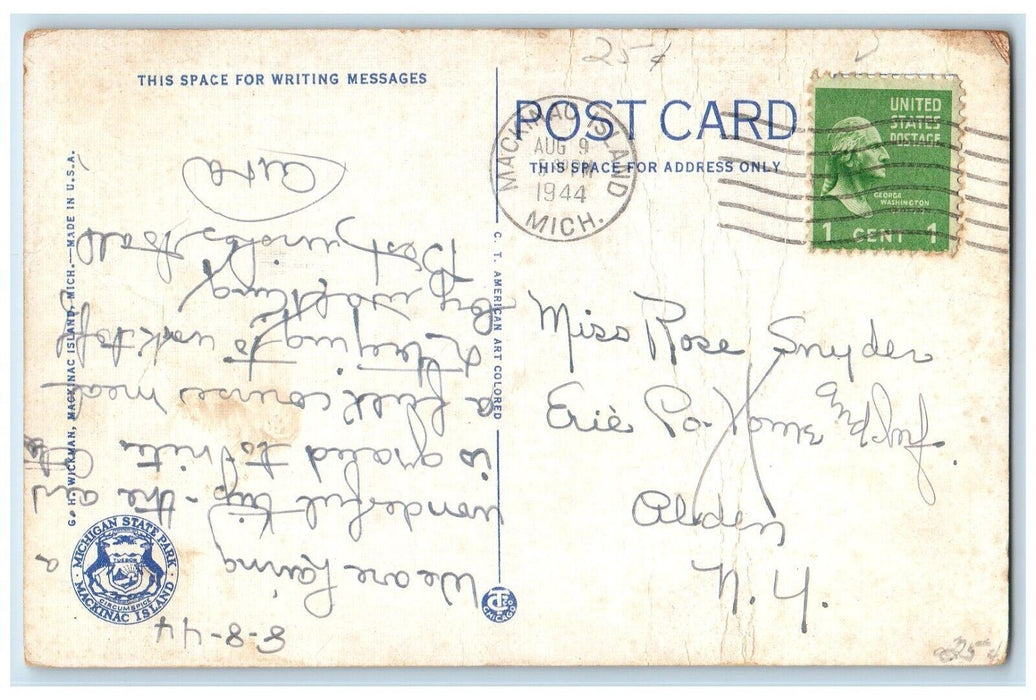 25¢
THIS SPACE FOR WRITING MESSAGES
POST CARD
THIS SPACE FOR ADDRESS ONLY
MACKINAC ISLAND
AUG 9
1944
MICH.
UNITED
STATES
POSTAGE
GEORGE
WASHINGTON
1 CENT 1
G. H. WICKMAN, MACKINAC ISLAND, MICH.—MADE IN U.S.A.
C. T. AMERICAN ART COLORED
8-8-44
We are having a
wonderful trip - the air
is grand to nite. Ate
a full course meal
& trying to work it off
by walking
Best wishes to all
Miss Rose Snyder
Erie Co. Home
Alden
N. Y.
MICHIGAN STATE PARK
TUEBOR
CIRCUMSPICE
MACKINAC ISLAND
CT
CO
CHICAGO
25¢